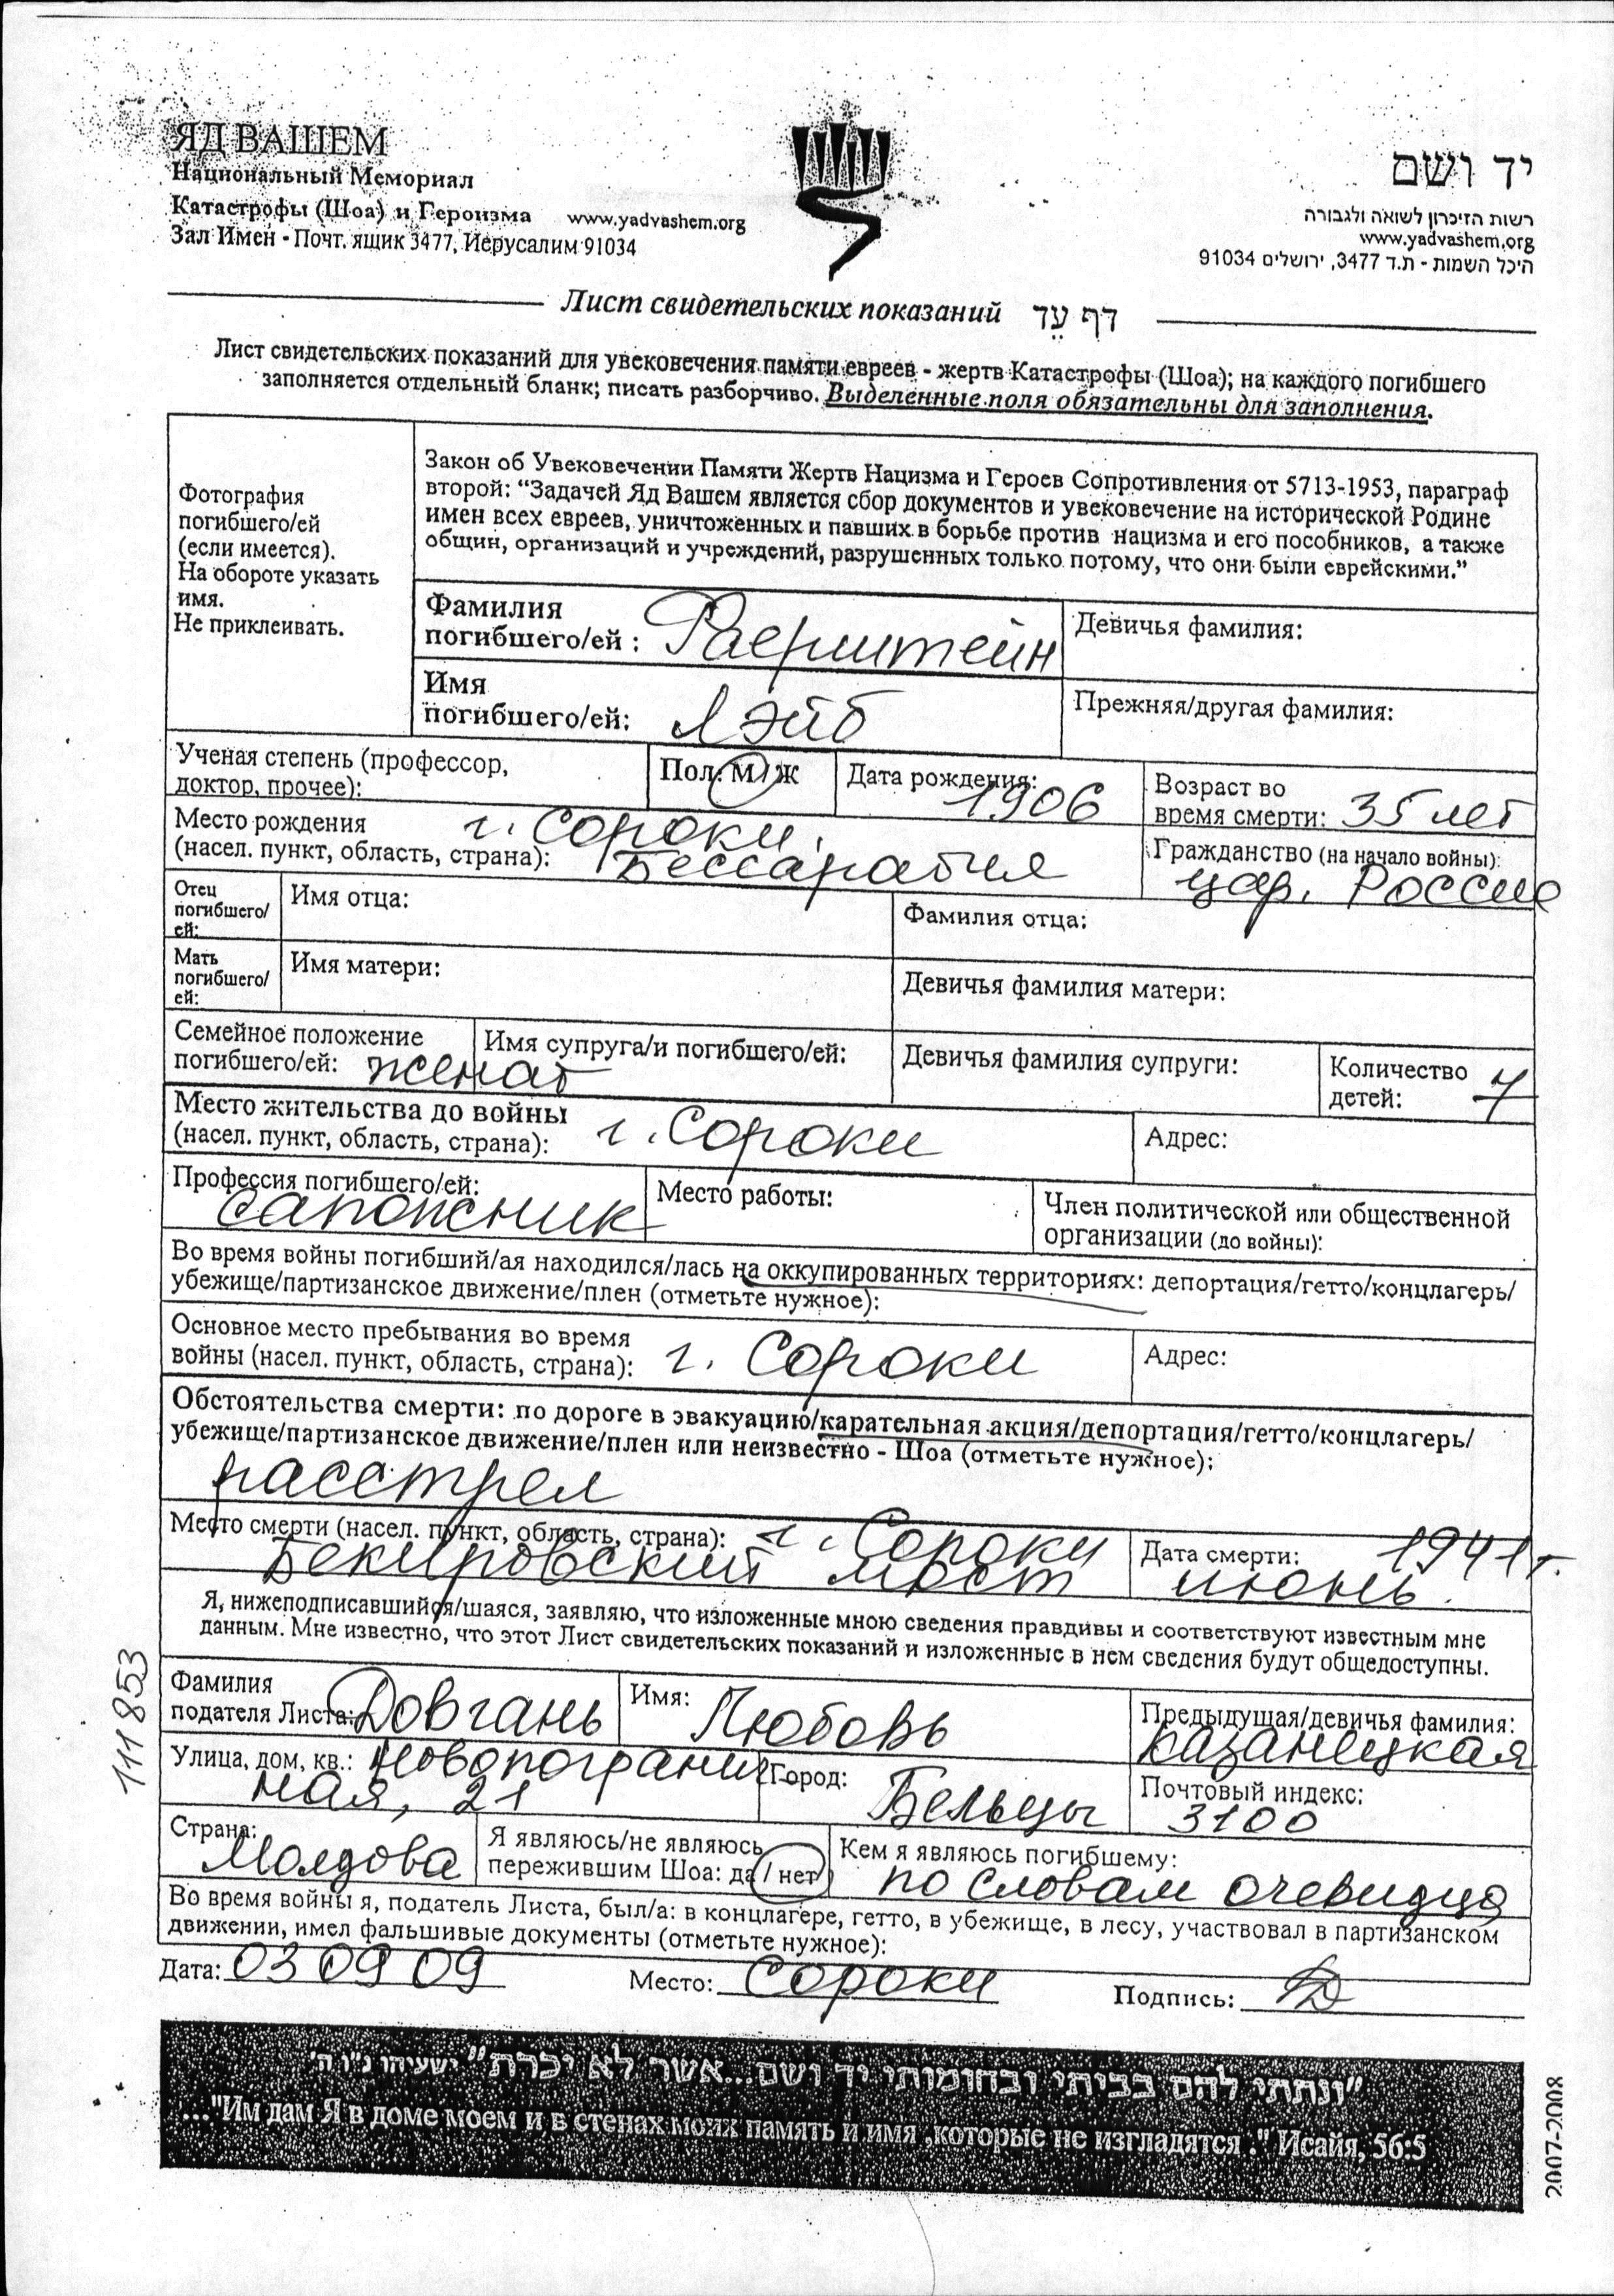 ЯД ВАШЕМ
Национальный Мемориал
Катастрофы (Шоа) и Героизма www.yadvashem.org
Зал Имен - Почт. ящик 3477, Иерусалим 91034
יד ושם
רשות הזיכרון לשואה ולגבורה
www.yadvashem.org
היכל השמות - ת.ד 3477, ירושלים 91034
Лист свидетельских показаний דף עֵד
Лист свидетельских показаний для увековечения памяти евреев - жертв Катастрофы (Шоа); на каждого погибшего
заполняется отдельный бланк; писать разборчиво. Выделенные поля обязательны для заполнения.
Фотография
погибшего/ей
(если имеется).
На обороте указать
имя.
Не приклеивать.
Закон об Увековечении Памяти Жертв Нацизма и Героев Сопротивления от 5713-1953, параграф
второй: “Задачей Яд Вашем является сбор документов и увековечение на исторической Родине
имен всех евреев, уничтоженных и павших в борьбе против нацизма и его пособников, а также
общин, организаций и учреждений, разрушенных только потому, что они были еврейскими.”
Фамилия
погибшего/ей : Фаерштейн
Девичья фамилия:
Имя
погибшего/ей: Лэйб
Прежняя/другая фамилия:
Ученая степень (профессор,
доктор, прочее):
Пол: М/Ж
Дата рождения:
1906
Возраст во
время смерти: 35 лет
Место рождения г. Сороки,
(насел. пункт, область, страна): Бессарабия
Гражданство (на начало войны):
цар. Россия
Отец
погибшего/
ей:
Имя отца:
Фамилия отца:
Мать
погибшего/
ей:
Имя матери:
Девичья фамилия матери:
Семейное положение
погибшего/ей: женат
Имя супруга/и погибшего/ей:
Девичья фамилия супруги:
Количество
детей: 7
Место жительства до войны
(насел. пункт, область, страна): г. Сороки
Адрес:
Профессия погибшего/ей:
сапожник
Место работы:
Член политической или общественной
организации (до войны):
Во время войны погибший/ая находился/лась на оккупированных территориях: депортация/гетто/концлагерь/
убежище/партизанское движение/плен (отметьте нужное):
Основное место пребывания во время
войны (насел. пункт, область, страна): г. Сороки
Адрес:
Обстоятельства смерти: по дороге в эвакуацию/карательная акция/депортация/гетто/концлагерь/
убежище/партизанское движение/плен или неизвестно - Шоа (отметьте нужное):
расстрел
Место смерти (насел. пункт, область, страна): г. Сороки
Бекировский мост
Дата смерти: 1941г.
июнь.
Я, нижеподписавшийся/шаяся, заявляю, что изложенные мною сведения правдивы и соответствуют известным мне
данным. Мне известно, что этот Лист свидетельских показаний и изложенные в нем сведения будут общедоступны.
111853
Фамилия
подателя Листа: Довгань
Имя: Любовь
Предыдущая/девичья фамилия:
Казанецкая
Улица, дом, кв.: Новопогранич
ная, 21
Город: Бельцы
Почтовый индекс:
3100
Страна:
Молдова
Я являюсь/не являюсь
пережившим Шоа: да / нет
Кем я являюсь погибшему:
по словам очевидца
Во время войны я, податель Листа, был/а: в концлагере, гетто, в убежище, в лесу, участвовал в партизанском
движении, имел фальшивые документы (отметьте нужное):
Дата: 03 09 09 Место: Сороки Подпись:
"ונתתי להם בביתי ובחומותי יד ושם...אשר לא יכרת" ישעיהו נ"ו ה'
..."Им дам Я в доме моем и в стенах моих память и имя ,которые не изгладятся ." Исайя, 56:5
2007-2008